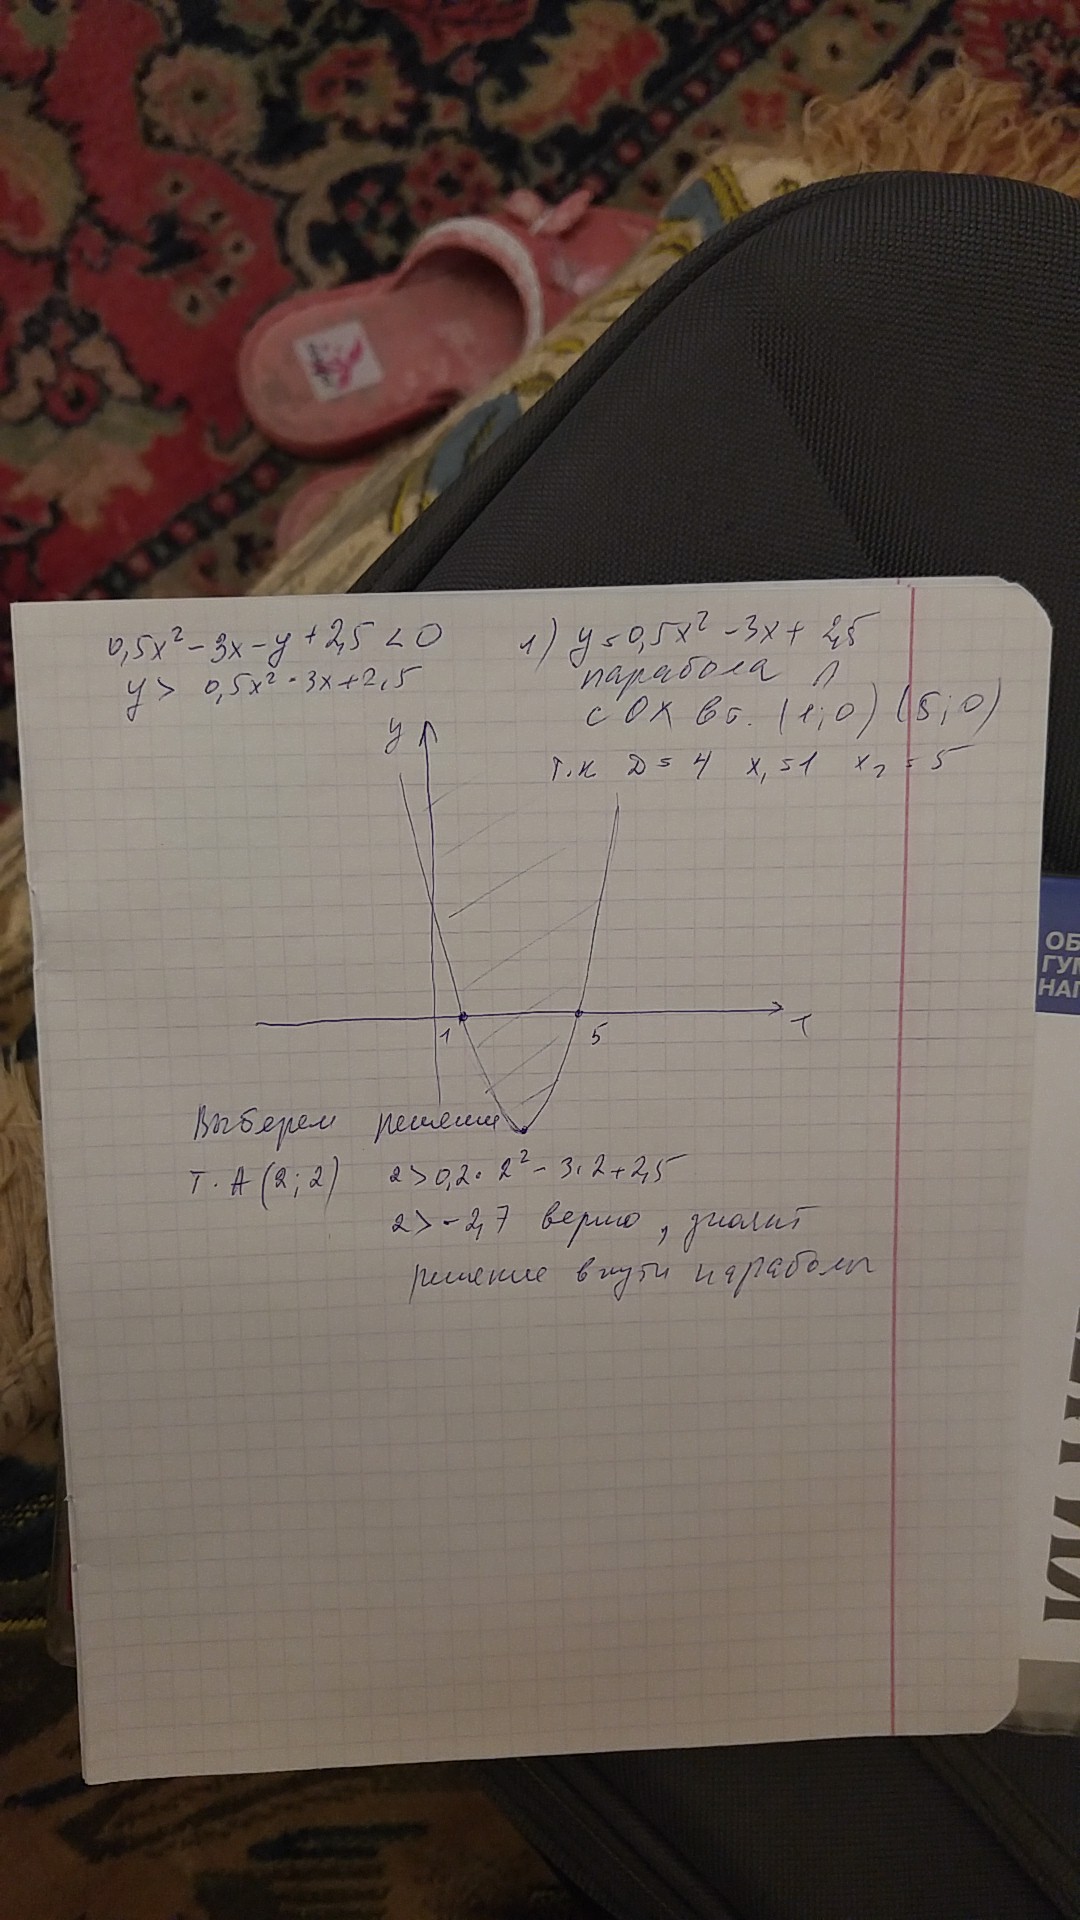 0,5x² - 3x - y + 2,5 < 0
y > 0,5x² - 3x + 2,5
1) y = 0,5x² - 3x + 2,5
парабола ∩
с OX в т. (1;0) (5;0)
т.к D = 4 x₁ = 1 x₂ = 5
y
1
5
Выберем решение
т. A (2;2) 2 > 0,2 · 2² - 3·2 + 2,5
2 > -2,7 верно, значит
решение внути параболы
ОБ
ГУМ
НАГ